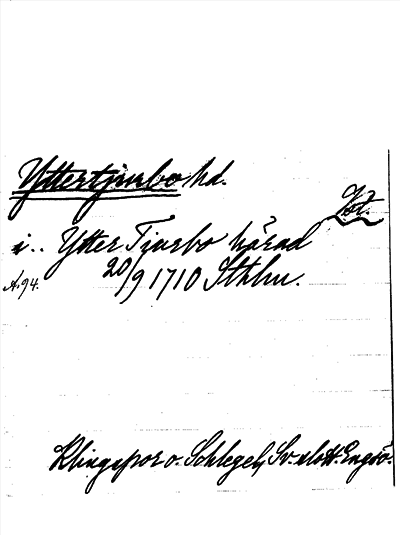 Yttertjurbo hd.
Vst.
i.. Ytter Tjurbo härad
A. 94. 20/9 1710 Sthlm.
Klingspor o. Schlegel, Sv. slott. Engsö.